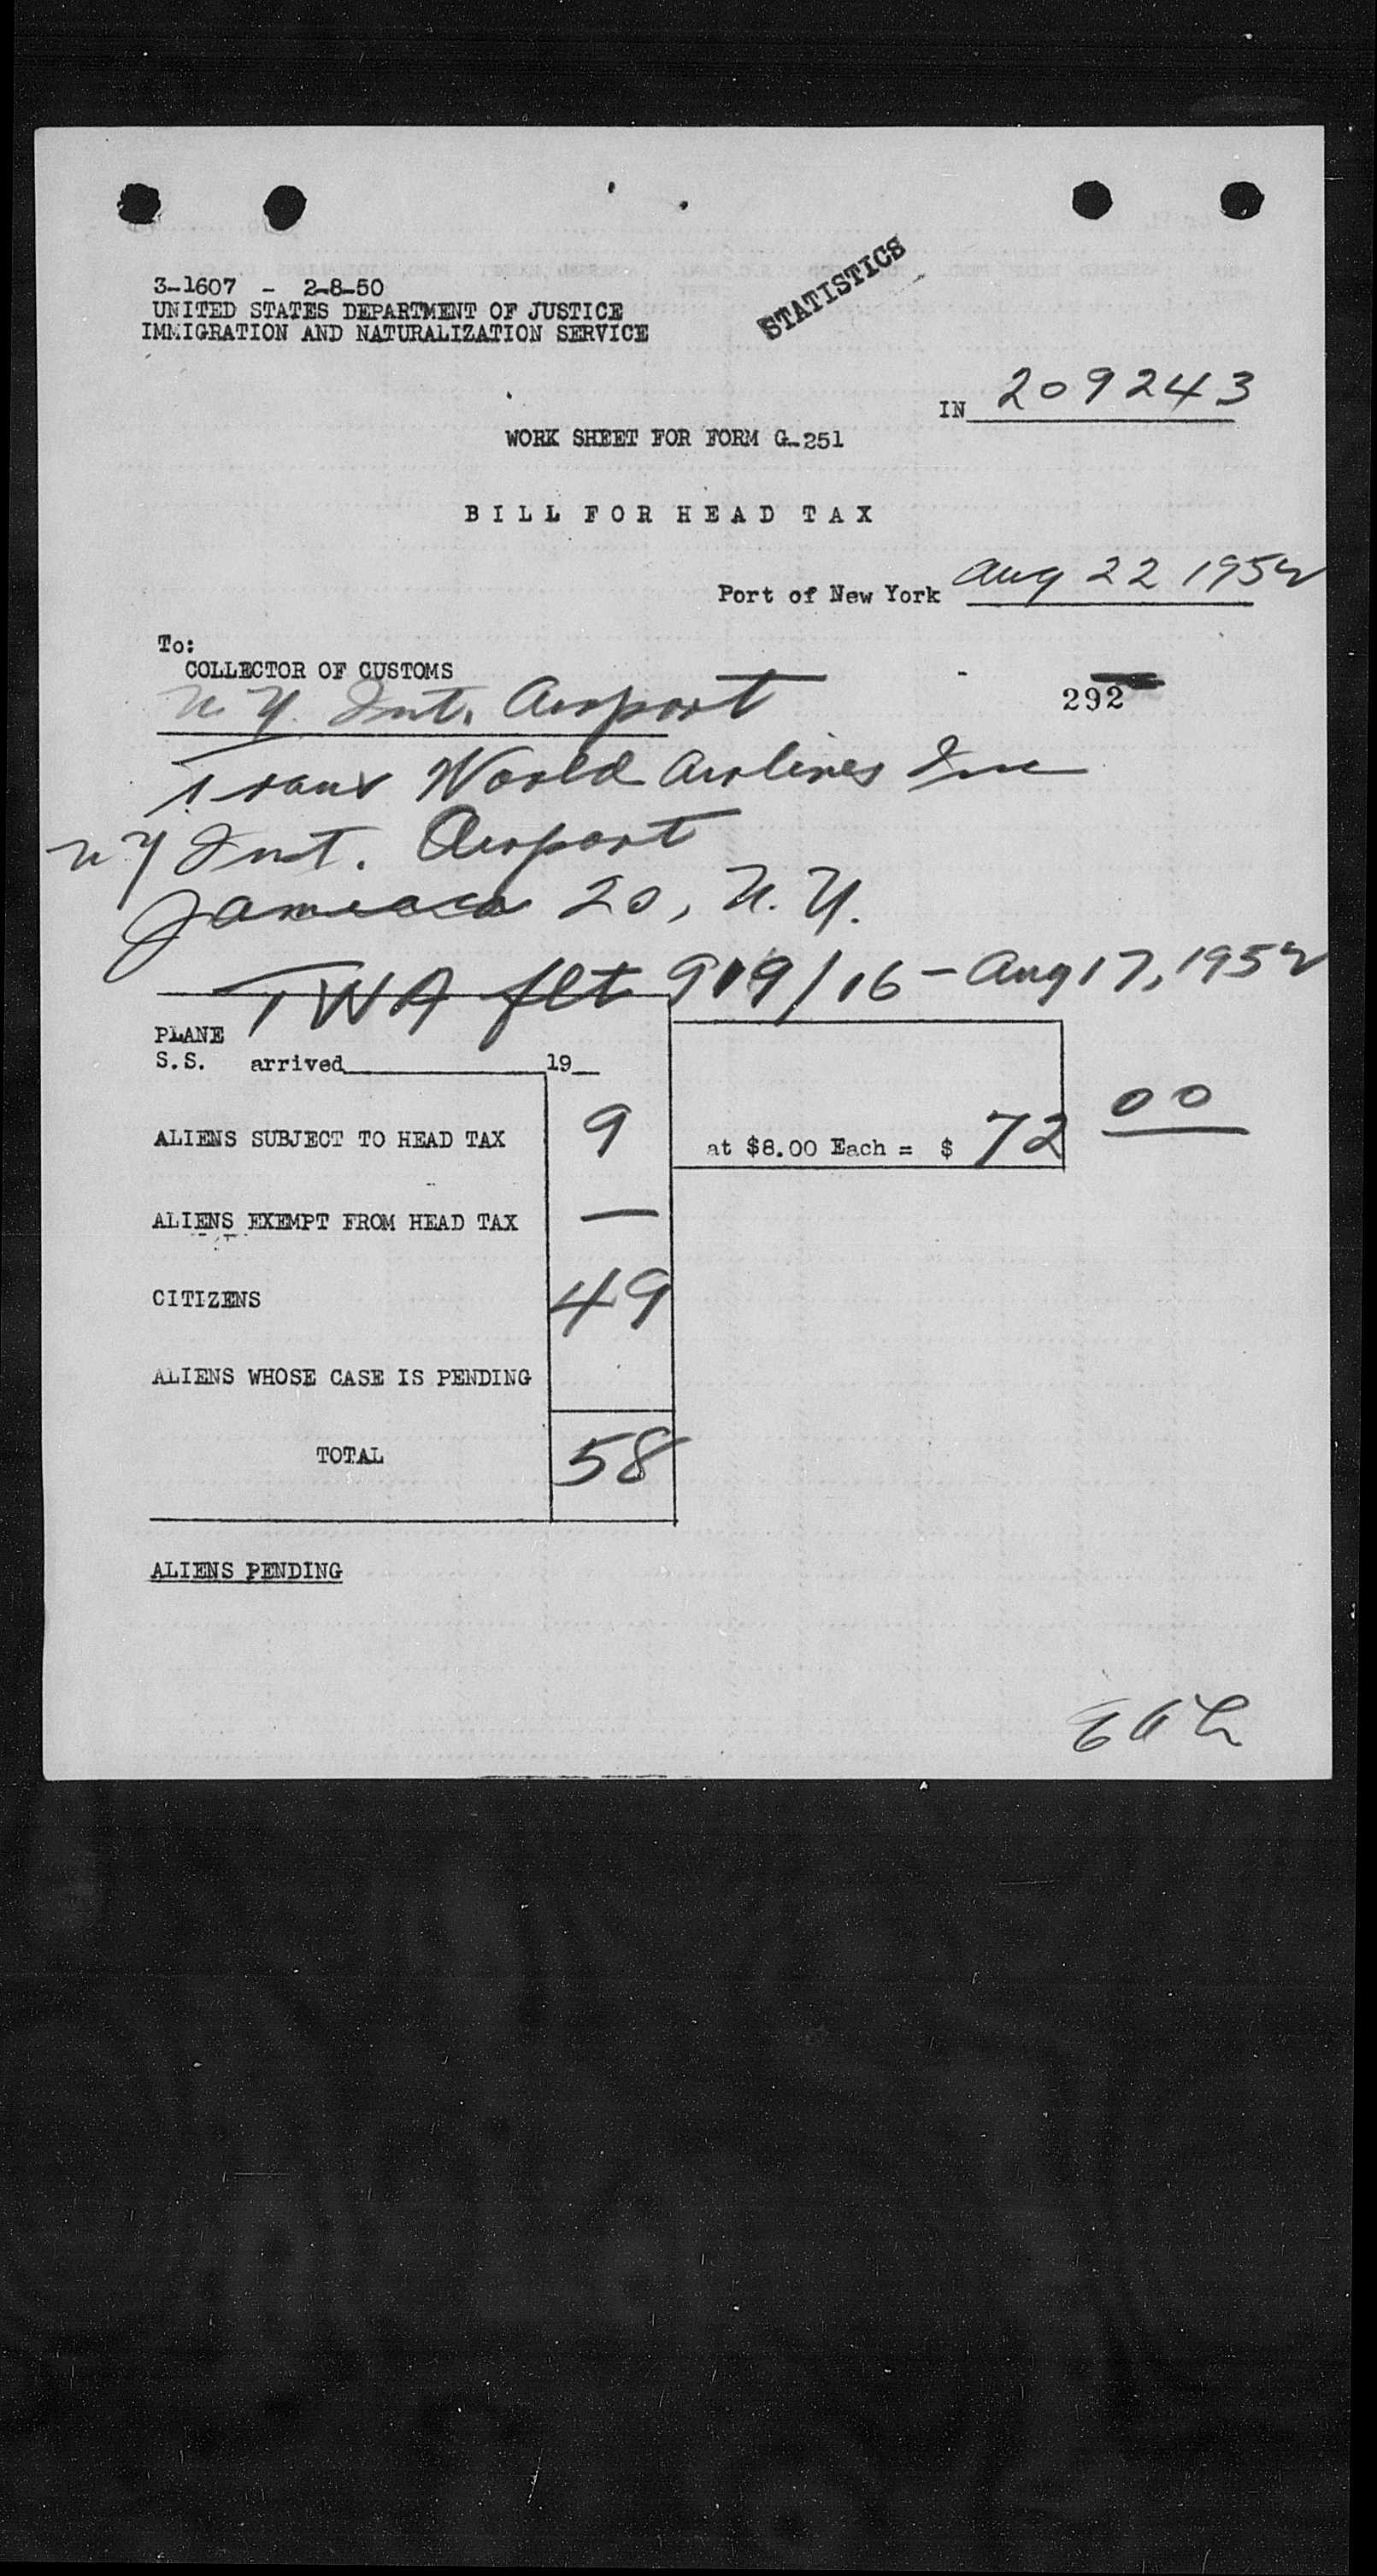 STATISTICS
3-1607 - 2-8-50
UNITED STATES DEPARTMENT OF JUSTICE
IMMIGRATION AND NATURALIZATION SERVICE
IN 209243
WORK SHEET FOR FORM G-251
BILL FOR HEAD TAX
Port of New York Aug 22 1952
To:
COLLECTOR OF CUSTOMS
N.Y. Int. Airport
292
Trans World Airlines Inc
NY Int. Airport
Jamaica 20, N.Y.
TWA flt 919/16 - Aug 17, 1952
PLANE
S.S. arrived 19
ALIENS SUBJECT TO HEAD TAX 9 at $8.00 Each = $ 72 00
ALIENS EXEMPT FROM HEAD TAX —
CITIZENS 49
ALIENS WHOSE CASE IS PENDING
TOTAL 58
ALIENS PENDING